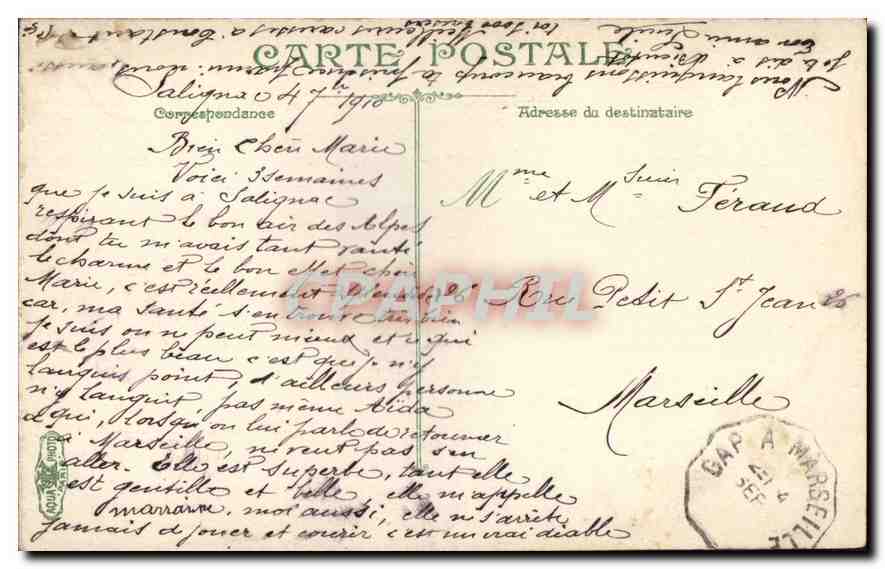 CARTE POSTALE
Correspondance
Adresse du destinataire
Salignac 4 7bre 1910
Bien Chère Marie
Voici 3 semaines
que je suis à Salignac
respirant le bon air des Alpes
dont tu m'avais tant vanté
le charme et le bon
Marie, c'est réellement
car, ma santé s'en trouve très bien
je suis on ne peut mieux et ce qui
est le plus beau c'est que je n'y
languis point, d'ailleurs personne
n'y languit, pas même Aïda
à qui, lorsqu'on lui parle de retourner
à Marseille, ne veut pas s'en
aller. Elle est superbe, tant elle
est gentille et belle, elle m'appelle
marraine, moi aussi, elle ne s'arrête
jamais de jouer et courir c'est un vrai diable
Nous languissons beaucoup
Je te dis à Bientôt
Ton amie
toi 1000 baisers
Meilleures causes à Constant
Mme et Mr Féraud
26 Rue Petit St Jean 26
Marseille
GAP A MARSEILLE
4 SEP
AQUA PHOTO
PARIS
CPAPHIL